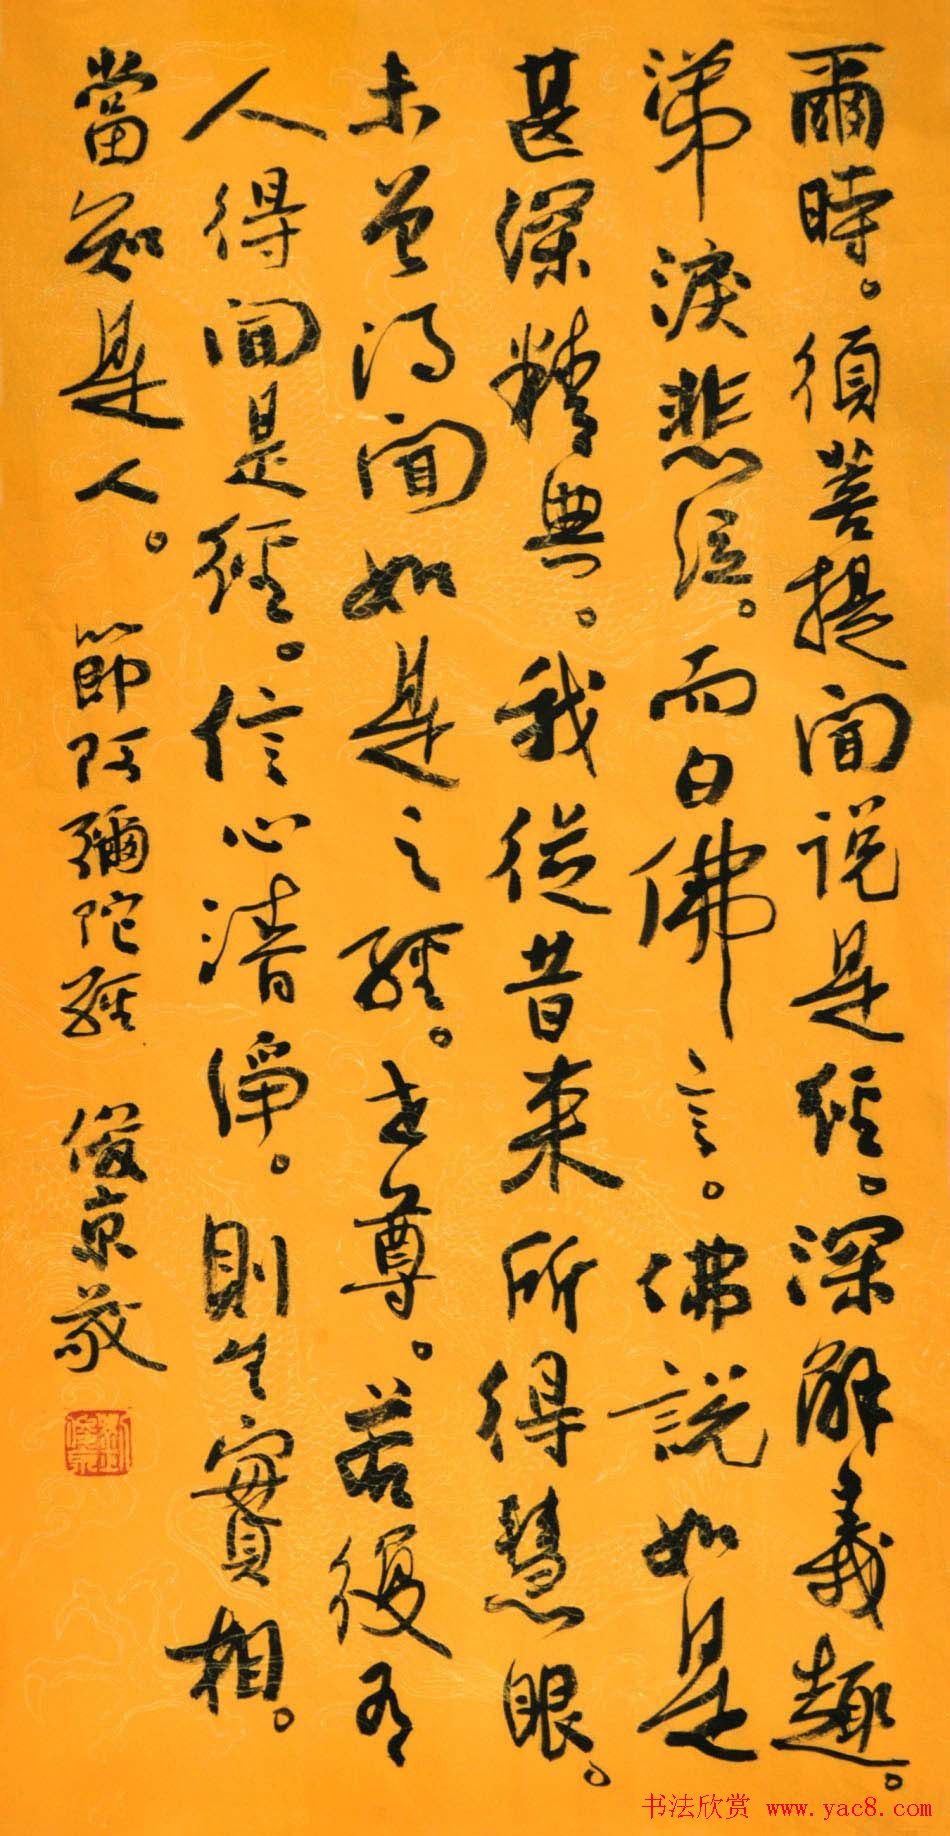 爾時。須菩提聞說是經。深解義趣。
涕淚悲泣。而白佛言。佛說如是
甚深精典。我從昔來所得慧眼。
未曾得聞如是之經。世尊。若復有
人得聞是經。信心清淨。則生實相。
當知是人。 節阿彌陀經 俊京敬
书法欣赏 www.yac8.com